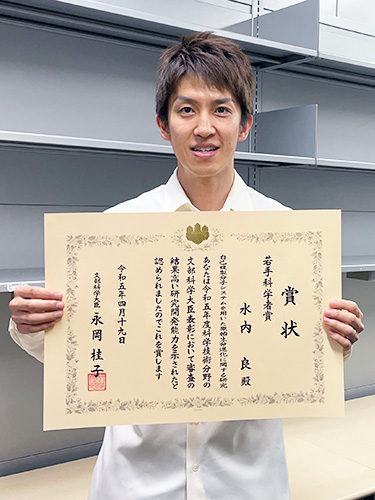 賞状
若手科学者賞
水内 良 殿
自己複製分子システムを用いた原始生命進化に関する研究
あなたは令和五年度科学技術分野の
文部科学大臣表彰において審査の
結果高い研究開発能力を示されたと
認められましたのでこれを賞します
令和五年四月十九日
文部科学大臣 永岡 桂子